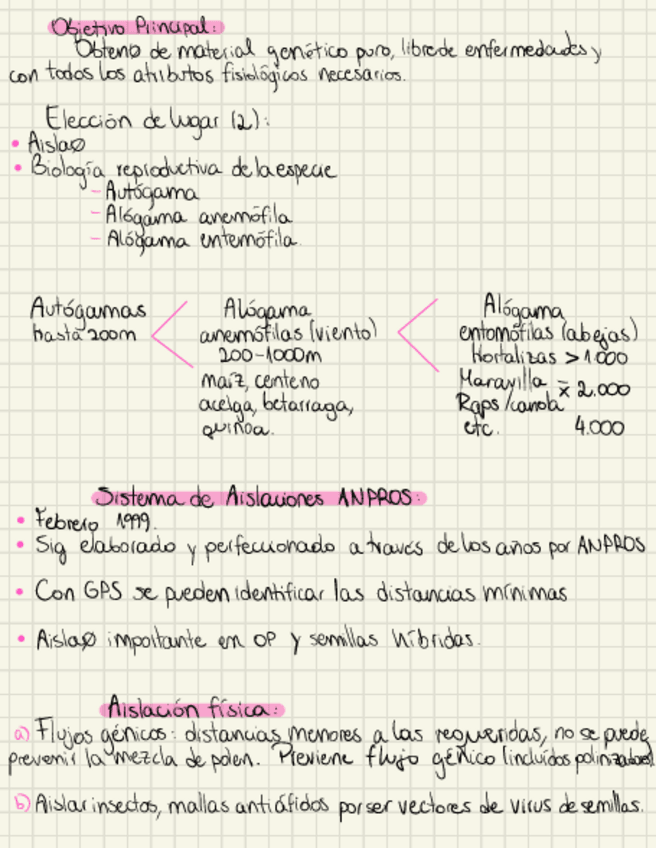 Objetivo Principal:
Obtenø de material genético puro, libre de enfermedades y
con todos los atributos fisiológicos necesarios.
Elección de lugar (2):
• Aislaø
• Biología reproductiva de la especie
- Autógama
- Alógama anemófila
- Alógama entemófila.
Autógamas
hasta 200m
Alógama
anemófilas (viento)
200-1000m
maíz, centeno
acelga, betarraga,
quinoa.
Alógama
entomófilas (abejas)
Hortalizas > 1.000
Maravilla x̄ 2.000
Raps/canola
etc. 4.000
Sistema de Aislaciones ANPROS:
• Febrero 1999.
• Sig elaborado y perfeccionado a través de los años por ANPROS
• Con GPS se pueden identificar las distancias mínimas
• Aislaø importante en OP y semillas híbridas.
Aislación física:
a) Flujos génicos: distancias menores a las requeridas, no se puede
prevenir la mezcla de polen. Previene flujo génico (incluídos polinizadores)
b) Aislar insectos, mallas antiáfidos por ser vectores de virus de semillas.